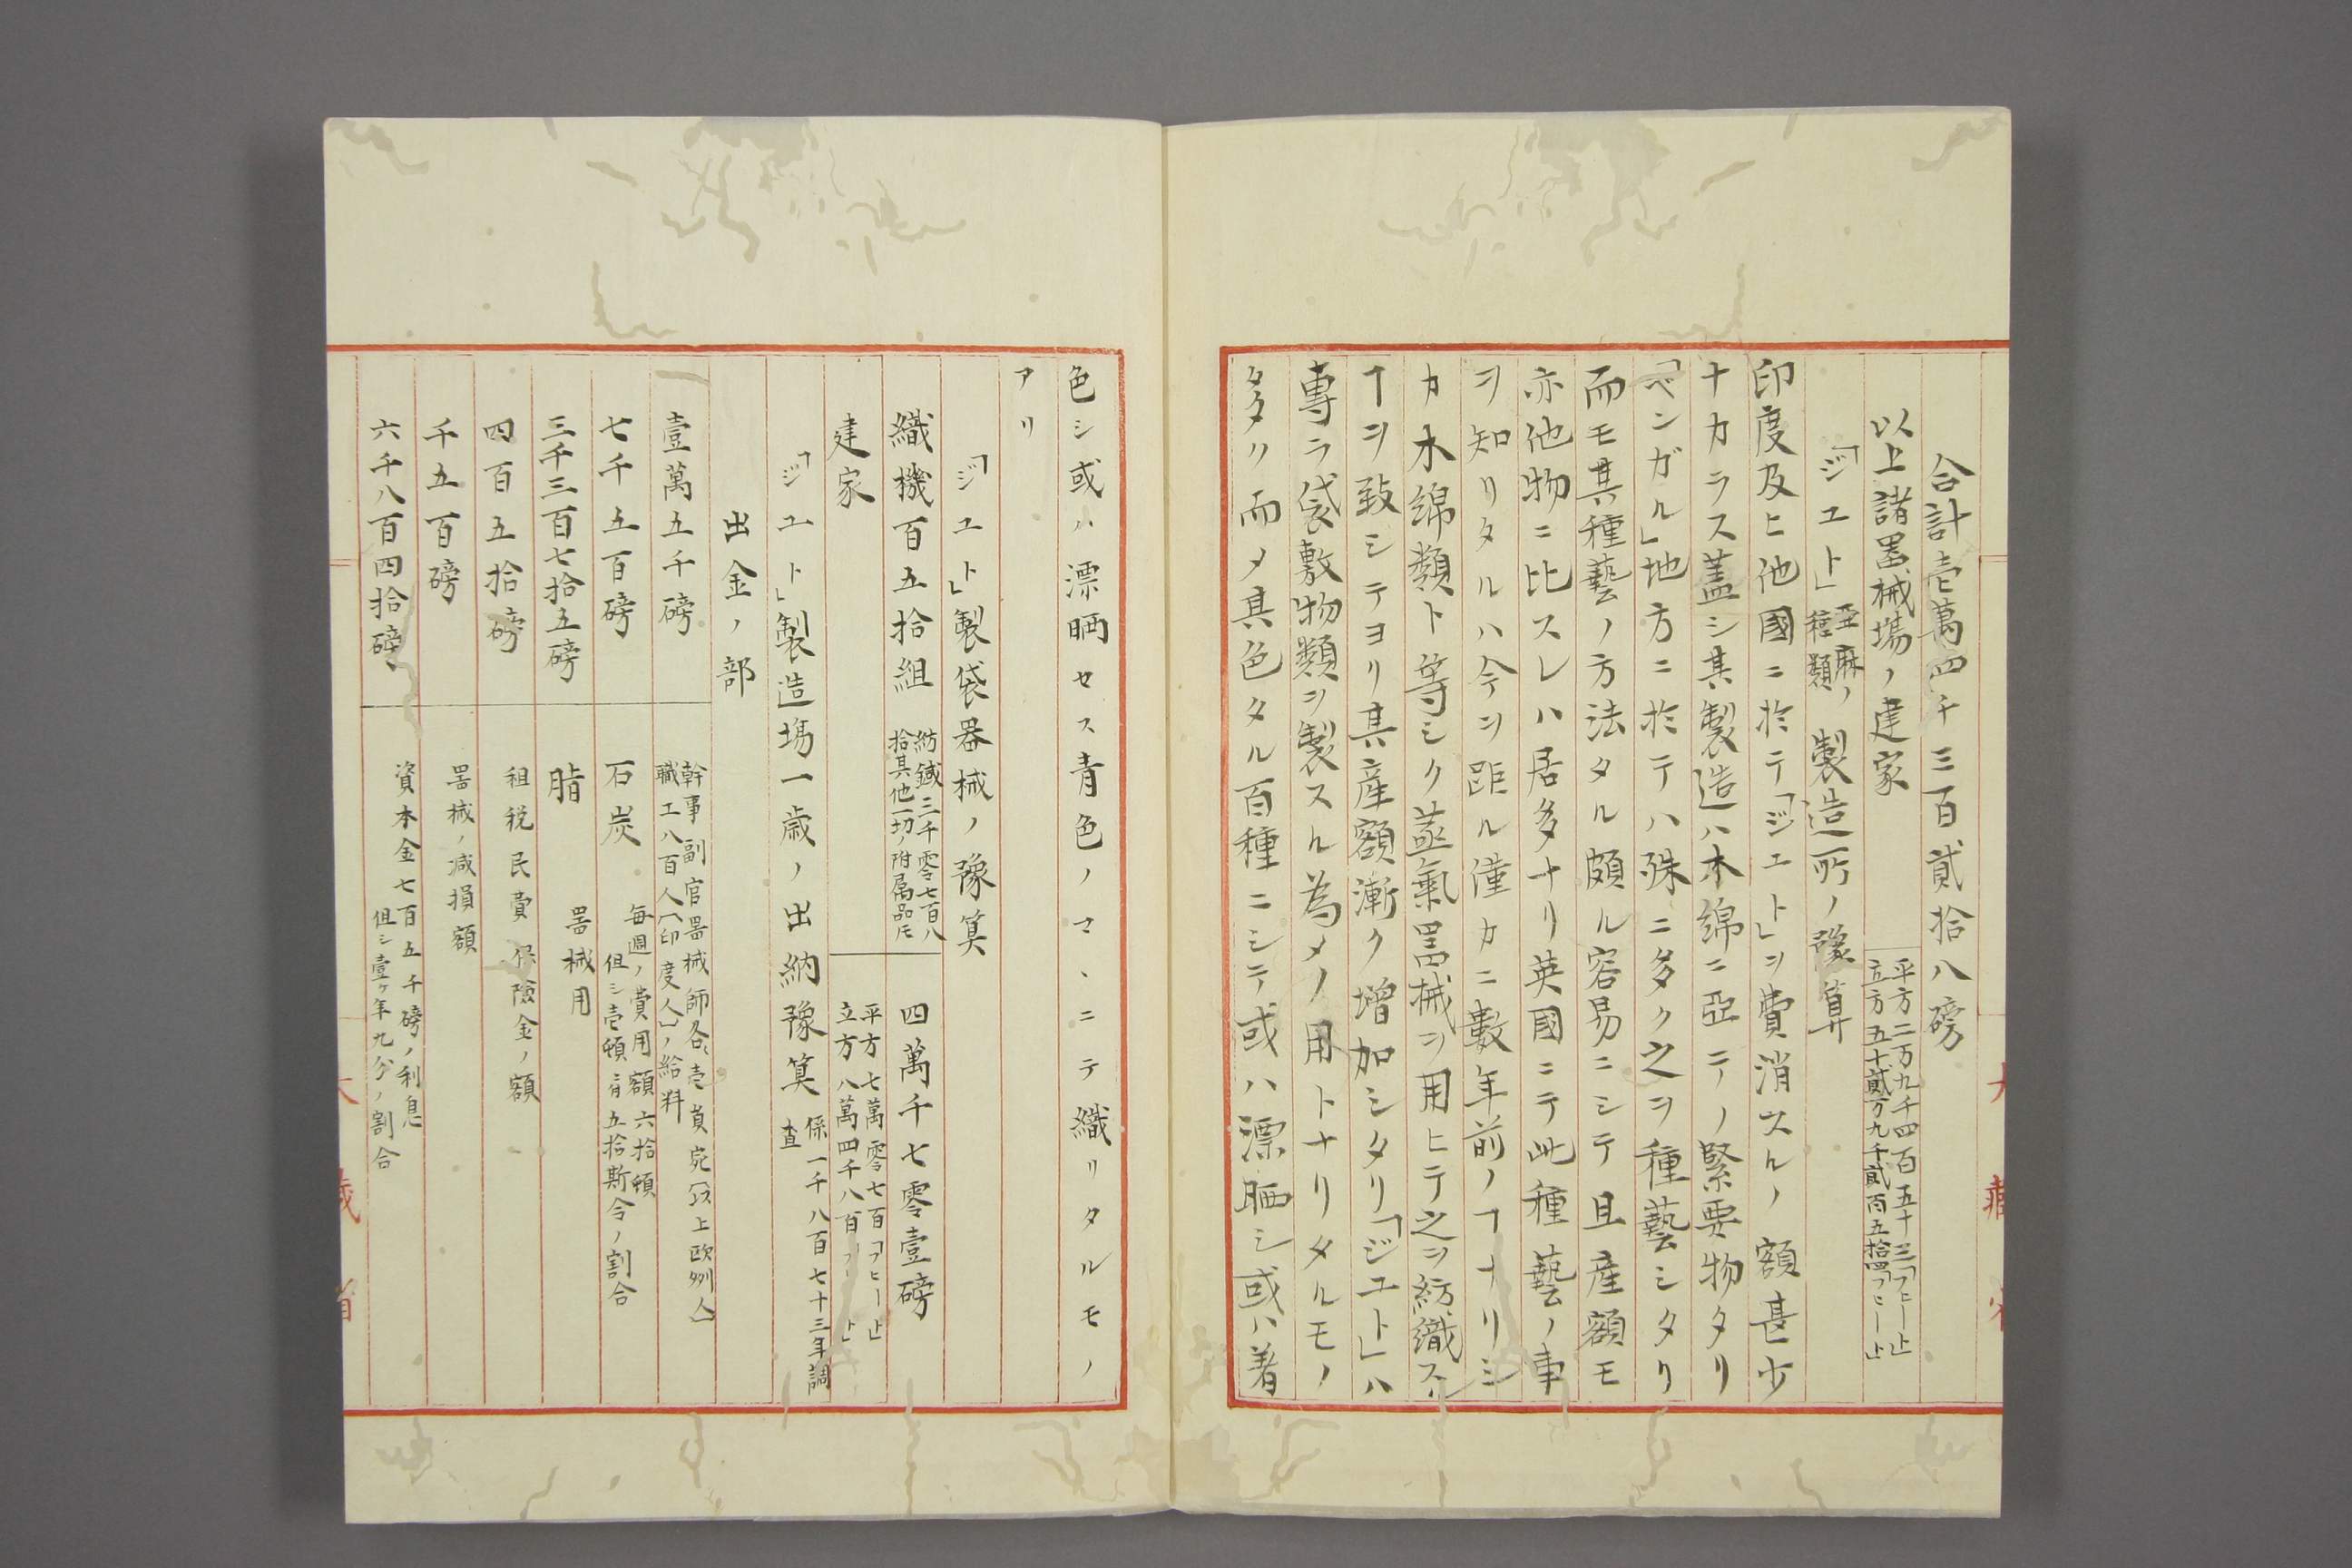 合計壱萬四千三百貳拾八磅
以上諸器械場ノ建家
平方二万九千四百五十三「フヒート」
立方五十貳万九千貳百五拾四「フヒート」
「ジユト」亞麻ノ種類製造所ノ豫算
印度及ヒ他國ニ於テ「ジユト」ヲ費消スルノ額甚少
ナカラス蓋シ其製造ハ木綿ニ亞テノ緊要物タリ
「ベンガル」地方ニ於テハ殊ニ多ク之ヲ種藝シタリ
而モ其種藝ノ方法タル頗ル容易ニシテ且産額モ
亦他物ニ比スレハ居多ナリ英國ニテ此種藝ノ事
ヲ知リタルハ今ヲ距ル僅カニ數年前ノヿナリシ
カ木綿類ト等シク蒸氣噐械ヲ用ヒテ之ヲ紡織スル
ヿヲ致シテヨリ其産額漸ク増加シタリ「ジユト」ハ
専ラ袋敷物類ヲ製スル為メノ用トナリタルモノ
多ク而メ其色タル百種ニシテ或ハ漂晒シ或ハ着
色シ或ハ漂晒セス青色ノマヽニテ織リタルモノ
アリ
「ジユト」製袋器械ノ豫算
織機百五拾組
紡錻三千零七百八
拾其他一切ノ附属品モ
四萬千七零壹磅
建家
平方七萬零七百「フヒート」
立方八萬四千八百「フヒート」
「ジユト」製造場一歳ノ出納豫算
係一千八百七十三年調
査
出金ノ部
壹萬五千磅
幹事副官噐械師各壱員宛(以上欧州人)
職工八百人(印度人)ノ給料
七千五百磅
石炭
毎週ノ費用額六拾頓
但シ壱頓ニ付五拾斯令ノ割合
三千三百七拾五磅
脂
噐械用
四百五拾磅
租税民費保險金ノ額
千五百磅
噐械ノ減損額
六千八百四拾磅
資本金七百五千磅ノ利息
但シ壹ヶ年九分ノ割合